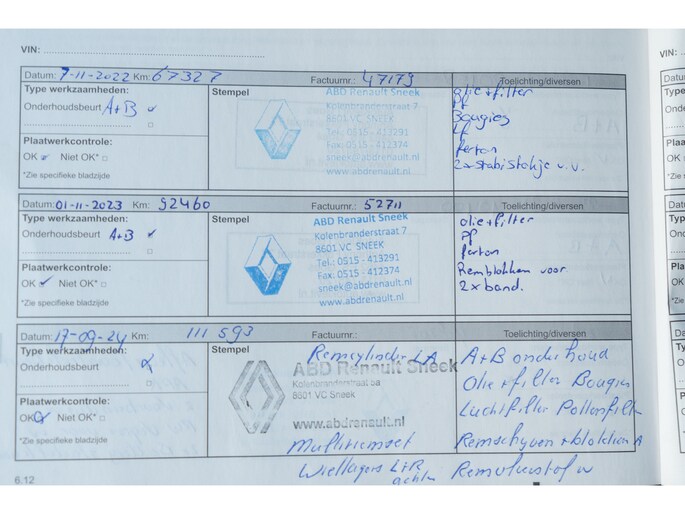 VIN:
Datum: 7-11-2022 Km: 67327 Factuurnr.: 47179 Toelichting/diversen
Type werkzaamheden:
Onderhoudsbeurt A+B
Plaatwerkcontrole:
OK Niet OK*
*Zie specifieke bladzijde
Stempel
ABD Renault Sneek
Kolenbranderstraat 7
8601 VC SNEEK
Tel.: 0515 - 413291
Fax: 0515 - 412374
sneek@abdrenault.nl
www.abdrenault.nl
olie+filter
Bougies
Perton
2x stabistokje v.v.
Datum: 01-11-2023 Km: 92460 Factuurnr.: 52711 Toelichting/diversen
Type werkzaamheden:
Onderhoudsbeurt A+B
Plaatwerkcontrole:
OK Niet OK*
*Zie specifieke bladzijde
Stempel
ABD Renault Sneek
Kolenbranderstraat 7
8601 VC SNEEK
Tel.: 0515 - 413291
Fax: 0515 - 412374
sneek@abdrenault.nl
www.abdrenault.nl
olie+filter
PF
Perton
Remblokken voor
2x band.
Datum: 17-09-24 Km: 111 593 Factuurnr.: Toelichting/diversen
Type werkzaamheden:
Onderhoudsbeurt
Plaatwerkcontrole:
OK Niet OK*
*Zie specifieke bladzijde
Stempel
Remcylinder LA
ABD Renault Sneek
Kolenbranderstraat
8601 VC Sneek
www.abdrenault.nl
Multiriemset
Wiellagers L+R
achter
A+B onderhoud
Olie+filter Bougies
Luchtfilter Pollenfilter
Remschijven+blokken A
Remvloeistof
6.12